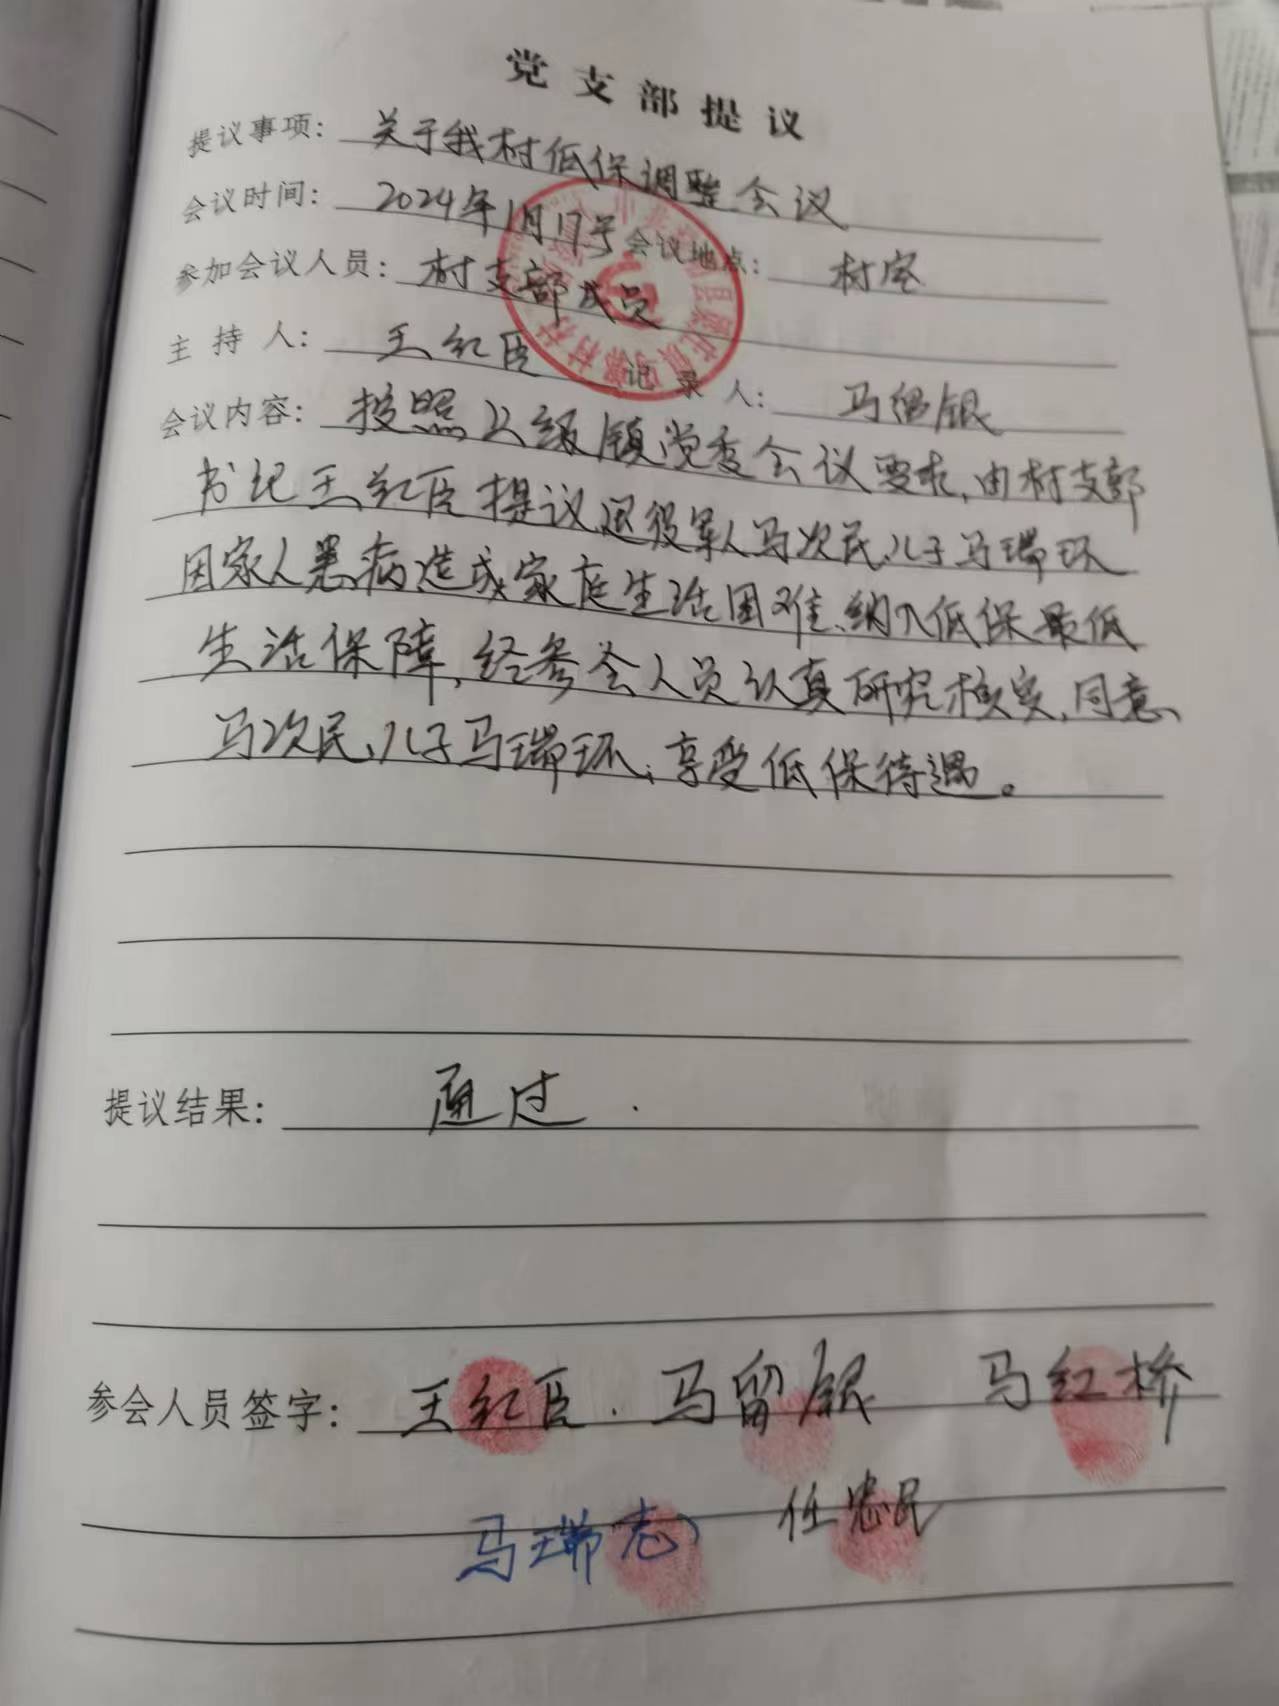 党支部提议
提议事项：关于我村低保调整会议
会议时间：2024年1月17号 会议地点：村室
参加会议人员：村支部成员
主持人：王红臣 记录人：马留银
会议内容：按照上级镇党委会议要求，由村支部
书记王红臣提议退役军人马次民儿子马瑞环
因家人患病造成家庭生活困难、纳入低保最低
生活保障，经参会人员认真研究核实，同意
马次民儿子马瑞环，享受低保待遇。
提议结果：通过.
参会人员签字：王红臣. 马留银 马红桥
马瑞志 任忠民